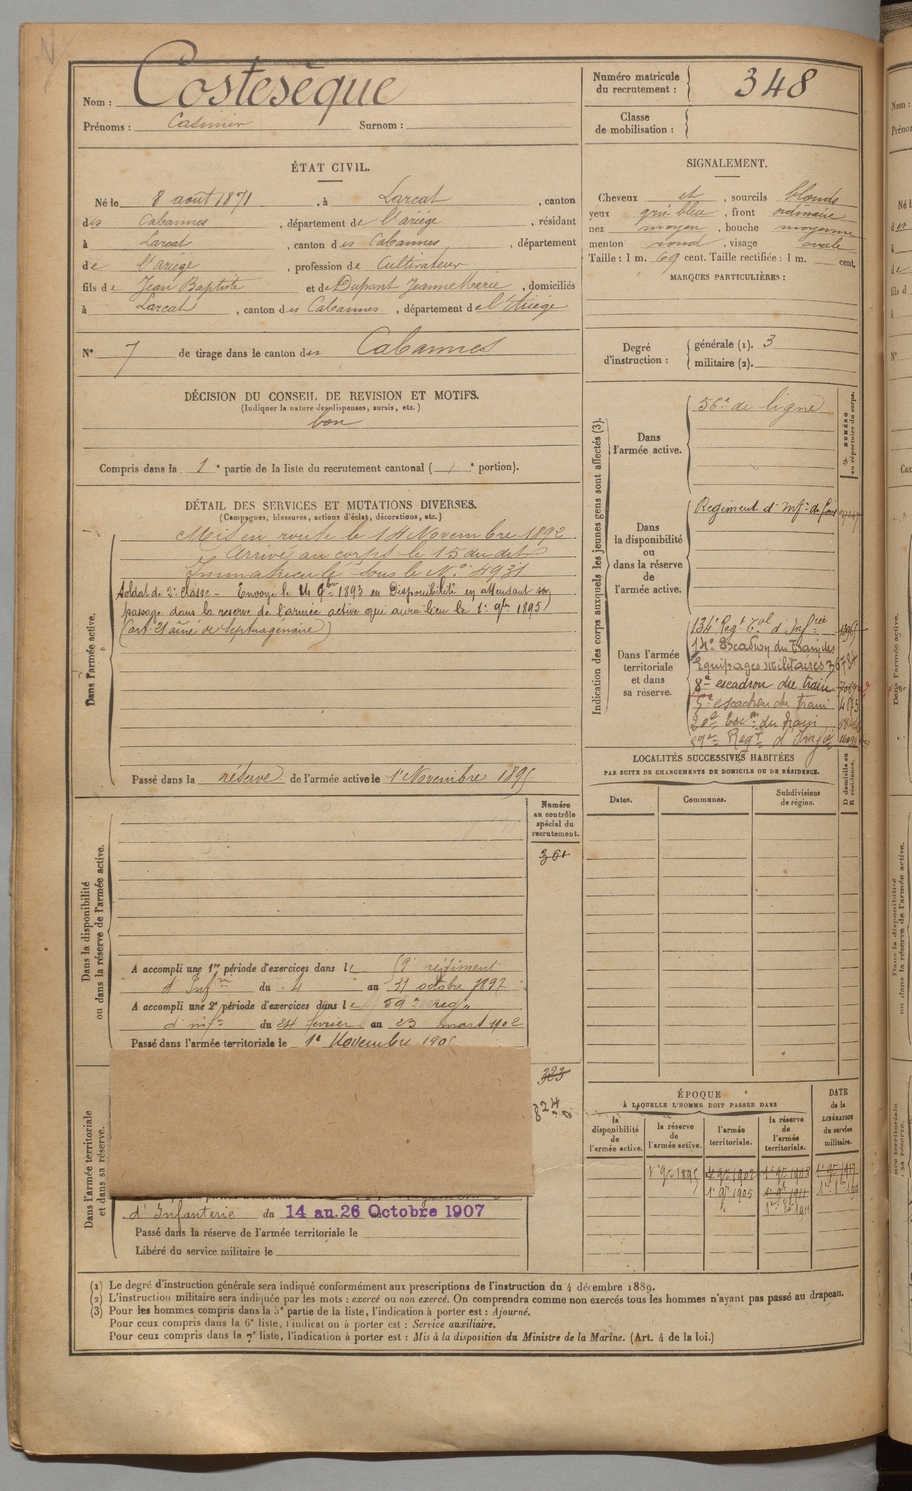 Nom : Costesèque
Prénoms : Casimir Surnom :
Numéro matricule du recrutement : 348
Classe de mobilisation :
ÉTAT CIVIL.
Né le 8 août 1871, à Larcat, canton
des Cabannes, département de l'ariège, résidant
à Larcat, canton des Cabannes, département
de l'ariège, profession de Cultivateur
fils de Jean Baptiste et de Dupont Jeanne Marie, domiciliés
à Larcat, canton des Cabannes, département de l'Ariège
N° 7 de tirage dans le canton des Cabannes
SIGNALEMENT.
Cheveux et, sourcils blonds
yeux gris bleu, front ordinaire
nez moyen, bouche moyenne
menton rond, visage ovale
Taille : 1 m. 69 cent. Taille rectifiée : 1 m. cent.
MARQUES PARTICULIÈRES :
Degré d'instruction :
générale (1). 3
militaire (2).
DÉCISION DU CONSEIL DE REVISION ET MOTIFS.
(Indiquer la nature des dispenses, sursis, etc.)
bon
Compris dans la 1e partie de la liste du recrutement cantonal ( e portion).
DÉTAIL DES SERVICES ET MUTATIONS DIVERSES.
(Campagnes, blessures, actions d'éclat, décorations, etc.)
Dans l'armée active.
Mis en route le 14 Novembre 1892
Arrivé au corps le 15 du dit
Immatriculé sous le N° 4931
Soldat de 2e classe - Envoyé le 9bre 1893 en Disponibilité en attendant son
passage dans la réserve de l'armée active qui aura lieu le 1er 9bre 1895
(art. 21 aîné de Septuagénaire)
Passé dans la réserve de l'armée active le 1er Novembre 1895
Indication des corps auxquels les jeunes gens sont affectés (3).
NUMÉRO au répertoire du corps.
Dans l'armée active.
56e de ligne
Dans la disponibilité ou dans la réserve de l'armée active.
Régiment d'Infie de
Dans l'armée territoriale et dans sa réserve.
134e Regt d'Infrie
14e Escadron du Train des
Equipages Militaires
8e escadron du train
5e escadron du train
du train
Regt d'Infie
LOCALITÉS SUCCESSIVES HABITÉES
PAR SUITE DE CHANGEMENTS DE DOMICILE OU DE RÉSIDENCE.
Dates. Communes. Subdivisions de région. D domicile ou R résidence.
Dans la disponibilité ou dans la réserve de l'armée active.
Numéro au contrôle spécial du recrutement.
361
A accompli une 1re période d'exercices dans le régiment
d'Infrie du 4 au 31 octobre 1897
A accompli une 2e période d'exercices dans le 59e reg.
d'infie du 24 février au 23 mars 1902
Passé dans l'armée territoriale le 1er Novembre 1905
Dans l'armée territoriale et dans sa réserve.
323
324
d'Infanterie du 14 au 26 Octobre 1907
Passé dans la réserve de l'armée territoriale le
Libéré du service militaire le
ÉPOQUE
À LAQUELLE L'HOMME DOIT PASSER DANS
la disponibilité de l'armée active.
la réserve de l'armée active.
l'armée territoriale.
la réserve de l'armée territoriale.
DATE de la LIBÉRATION du service militaire.
1er 9bre 1895 1er 9bre 1902 1er 9bre 1908 1er 9bre 1917
1er 9bre 1905 1er 9bre 1911
(1) Le degré d'instruction générale sera indiqué conformément aux prescriptions de l'instruction du 4 décembre 1889.
(2) L'instruction militaire sera indiquée par les mots : exercé ou non exercé. On comprendra comme non exercés tous les hommes n'ayant pas passé au drapeau.
(3) Pour les hommes compris dans la 5e partie de la liste, l'indication à porter est : Ajourné.
Pour ceux compris dans la 6e liste, l'indication à porter est : Service auxiliaire.
Pour ceux compris dans la 7e liste, l'indication à porter est : Mis à la disposition du Ministre de la Marine. (Art. 4 de la loi.)